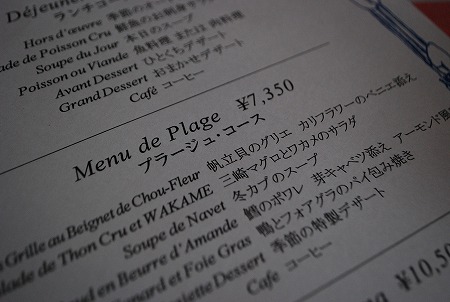 Déjeuner
ランチコー
Hors d'œuvre 季節のオー
lade de Poisson Cru 鮮魚のお刺身サラ
Soupe du Jour 本日のスープ
Poisson ou Viande 魚料理 または 肉料理
Avant Dessert ひとくちデザート
Grand Dessert おまかせデザート
Café コーヒー
Menu de Plage ¥7,350
プラージュ・コース
Grille au Beignet de Chou-Fleur 帆立貝のグリエ カリフラワーのベニエ添え
alade de Thon Cru et WAKAME 三崎マグロとワカメのサラダ
Soupe de Navet 冬カブのスープ
ud en Beurre d'Amande 鱈のポワレ 芽キャベツ添え アーモンド風
nard et Foie Gras 鴨とフォアグラのパイ包み焼き
lette Dessert 季節の特製デザート
Café コーヒー
¥10,50